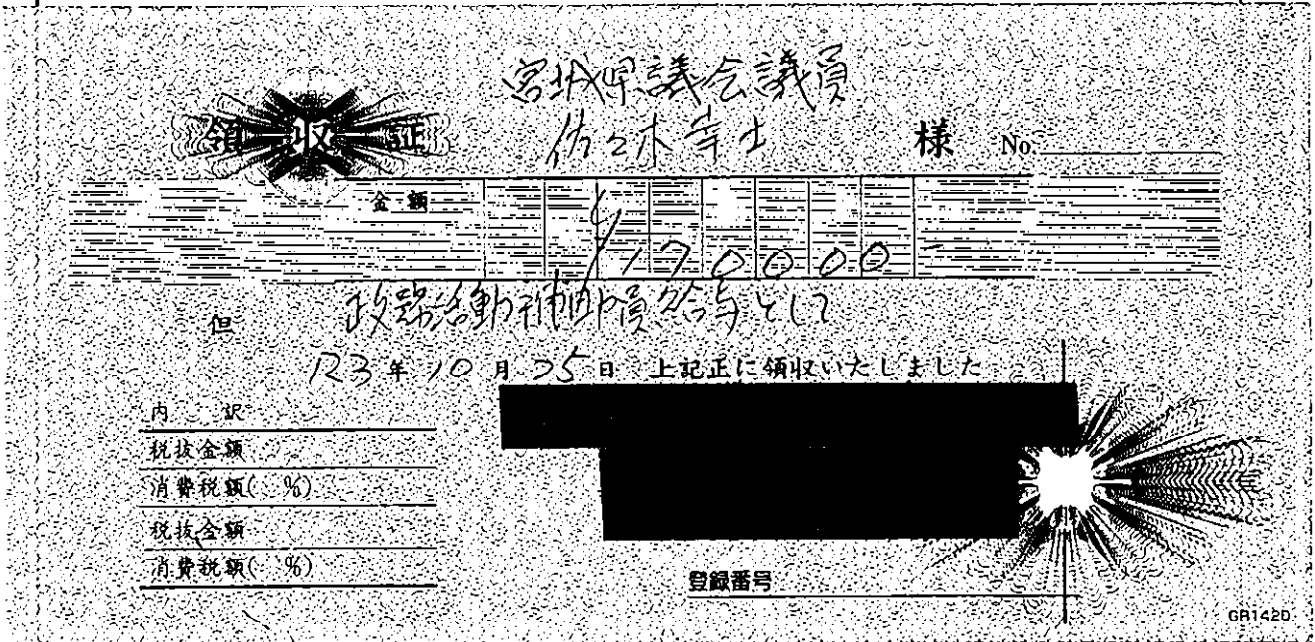 宮城県議会議員
領収証 佐々木幸士 様 No.
金額 ¥170000-
但 政務活動補助員給与として
R23年10月25日 上記正に領収いたしました
内訳
税抜金額
消費税額( %)
税抜金額
消費税額( %)
登録番号
GR1420